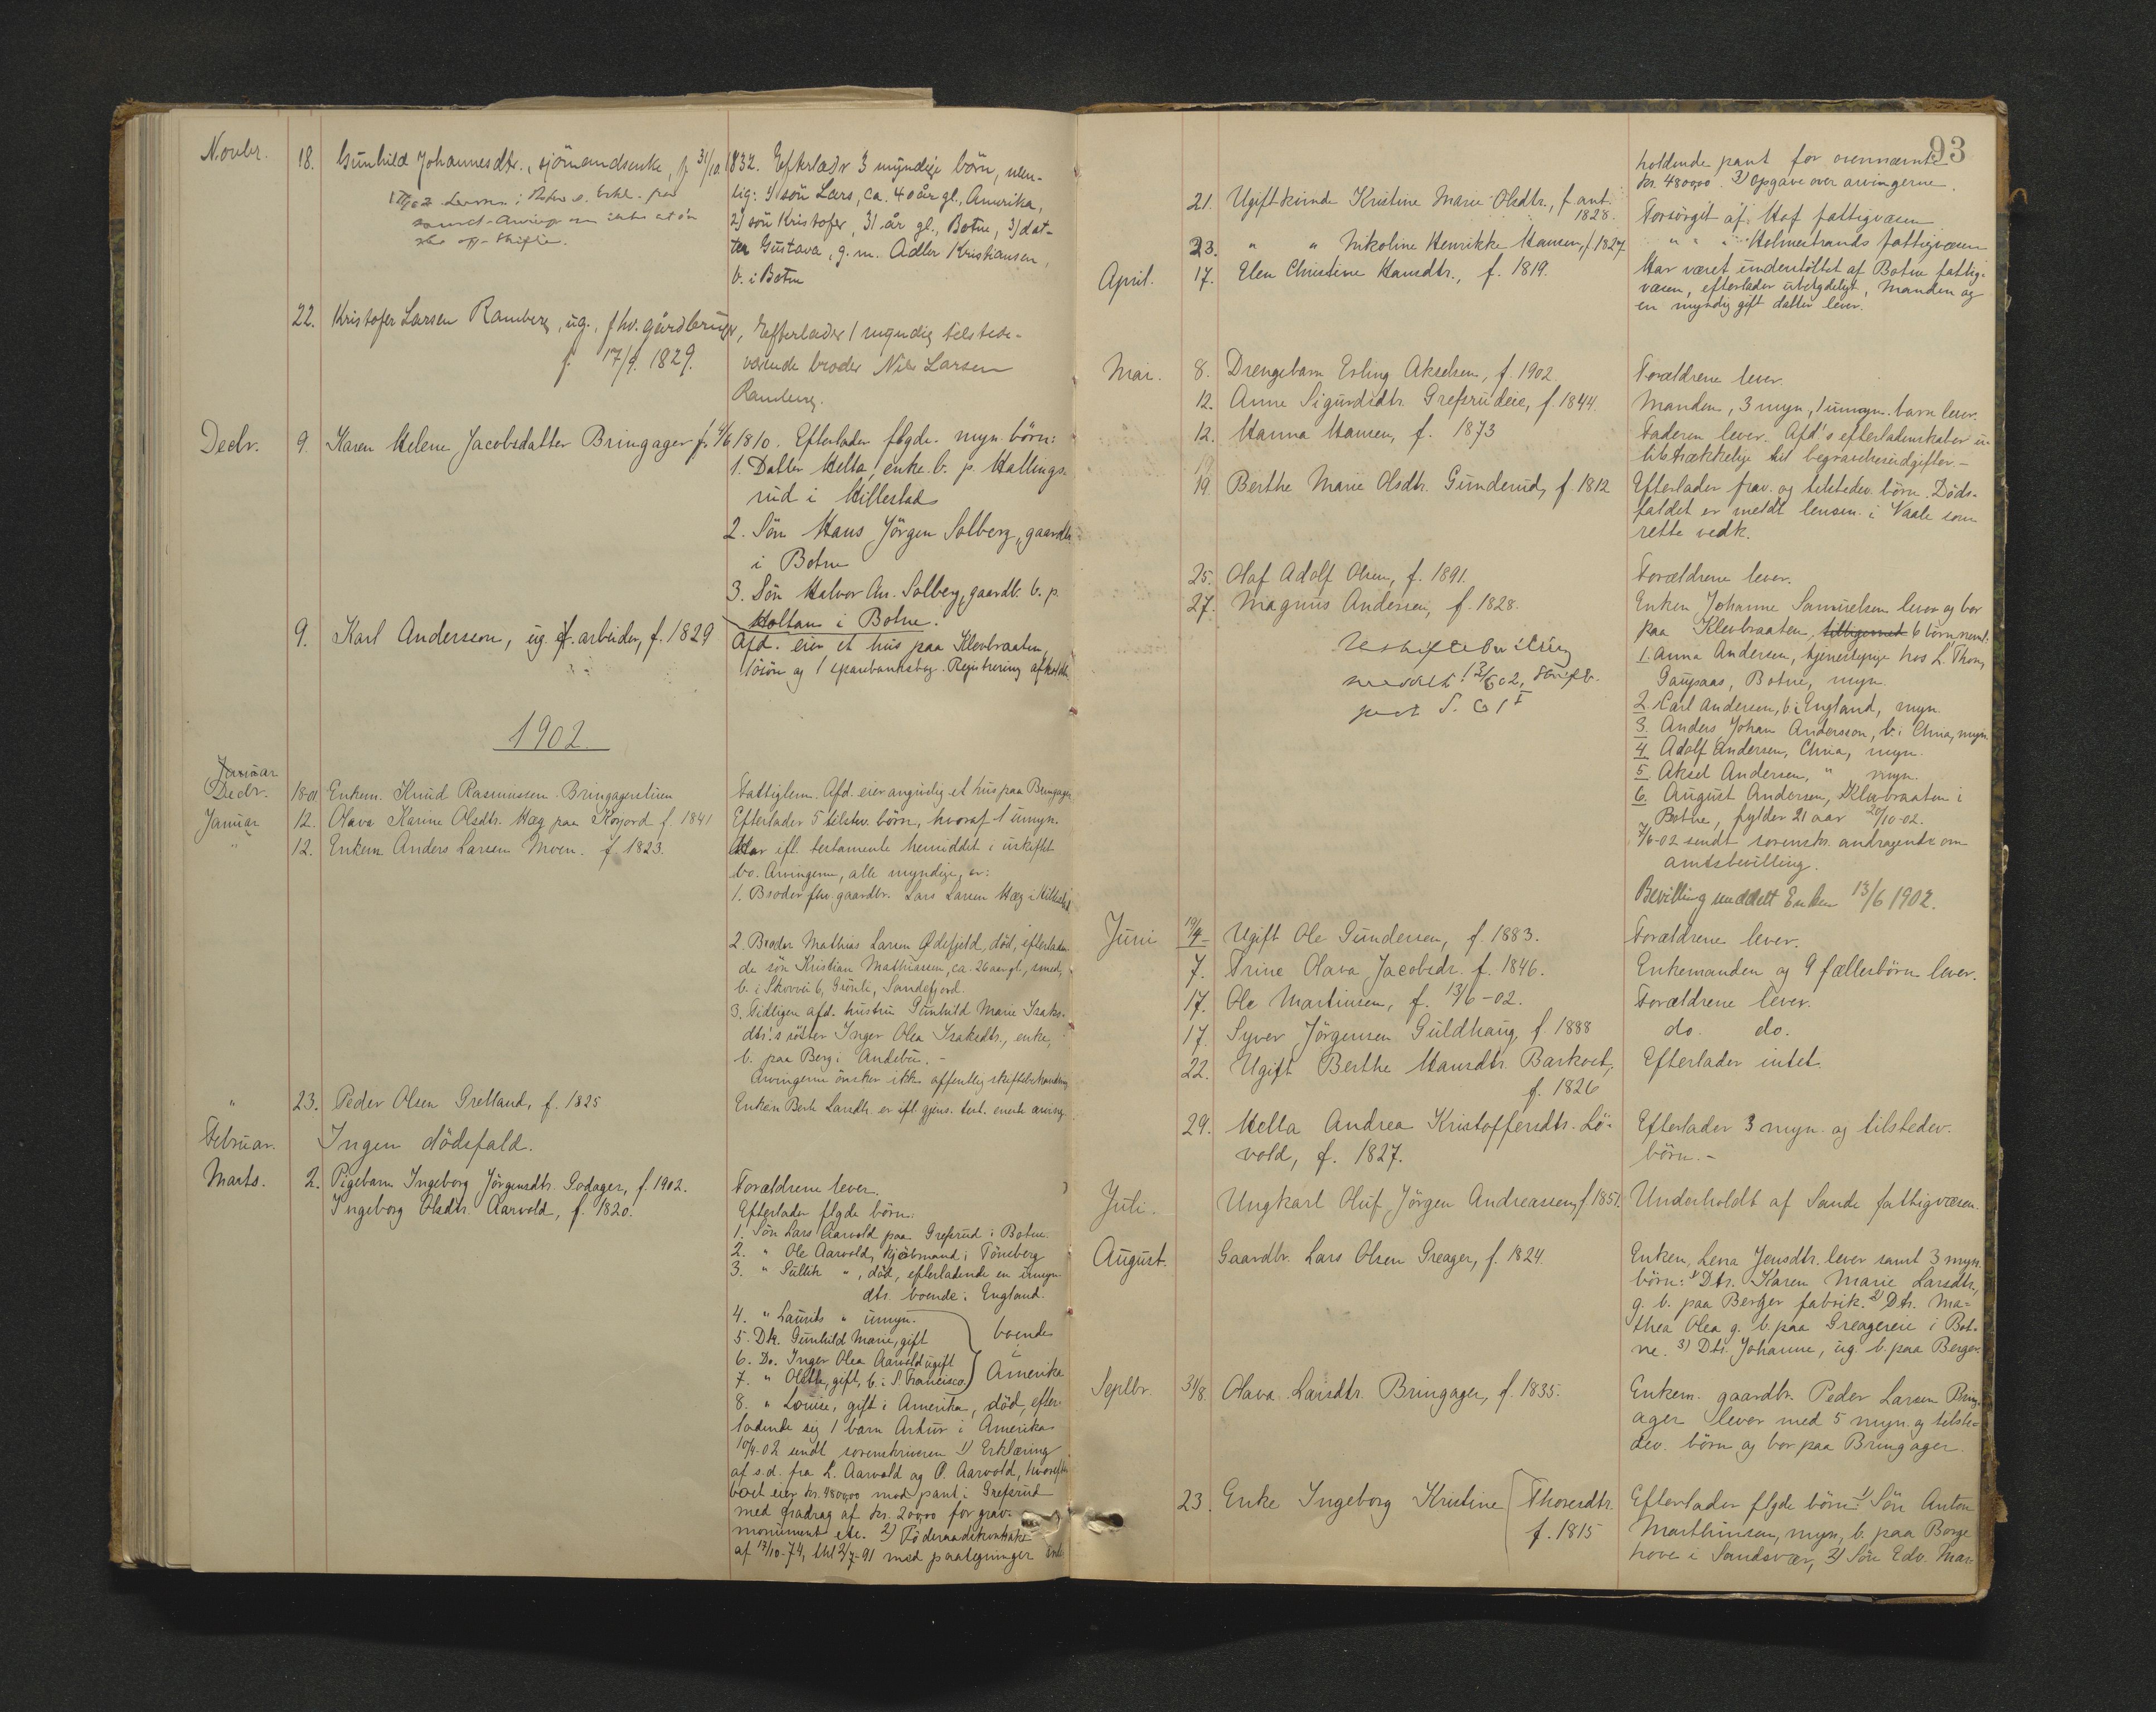 Novbr. 18. Gunhild Johannesdtr., sjömandsenke, f. 31/10 1832. Efterlader 3 myndige börn, nem-
lig: 1) sön Lars, ca. 40 år gl., Amerika,
2) sön Kristofer, 31 år gl., Botne, 3) dat-
ter Gustava, g. m. Adler Kristiansen,
b. i Botne
22. Kristofer Larsen Ramberg, ug., fhv. gårdbruger, Efterlader 1 myndig tilstede-
f. 17/9. 1829. værende broder Nils Larsen
Ramberg.
Decbr. 9. Karen Helene Jacobsdatter Bringager f. 4/6 1810. Efterlader flgde. myn. börn:
1. Datter Helta, enke. b. p. Hallings-
rud i Hillestad
2. Sön Hans Jörgen Solberg, gaardb.
i Botne
3. Sön Halvor An. Solberg, gaardb. b. p.
Holtan i Botne.
9. Karl Andersson, ug. arbeider, f. 1829 Afd. eier et hus paa Klevbraaten,
lösöre og 1 sparebanksbog. Registrering afholdt.
1902.
Januar
Decbr. Enkem. Knud Rasmussen Bringagerstuen Fattiglem. Afd. eier angivelig et hus paa Bringager
Januar 12. Olava Karine Olsdtr. Hæg paa Kopjord f. 1841 Efterlader 5 tilstev. börn, hvoraf 1 umyn.
" 12. Enkem. Anders Larsen Moen. f. 1823. Har efl. testamente hensiddet i uskiftet
bo. Arvingerne, alle myndige, er:
1. Broder fhv. gaardbr. Lars Larsen Hæg i Hillestad
2. Broder Mathias Larsen Ødefjeld, död, efterladen-
de sön Kristian Mathiassen, ca. 26 aar gl., smed,
b. i Skovvei 6, Grönli, Sandefjord.
3. Tidligere afd. hustru Gunhild Marie Isaks-
dtr.'s söster Inger Olea Isaksdtr., enke,
b. paa Berg i Andebu. -
Arvingerne önsker ikke offentlig skiftebehandling
" 23. Peder Olsen Grelland, f. 1825 Enken Berte Larsdtr. er ifl. gjens. test. eneste arving.
Februar. Ingen dödsfald.
Marts. 2. Pigebarn Ingeborg Jörgensdtr. Godager, f. 1902. Forældrene lever.
Ingeborg Olsdtr. Aarvold, f. 1820. Efterlader flgde börn:
1. Sön Lars Aarvold paa Grefsrud i Botne.
2. " Ole Aarvold, kjöbmand i Tönsberg
3. " Sullik ", död, efterladende en umyn.
dtr. boende i England.
4. " Laurits " umyn.
5. Dtr. Gunhild Marie, gift boende
6. Do. Inger Olea Aarvold ugift i
7. " Olette, gift, b. i S. Francisco Amerika
8. " Louise, gift i Amerika, död, efter-
ladende sig 1 barn Artur i Amerika
10/4-02 sendt sorenskriveren 1) Erklæring
af s.d. fra L. Aarvold og O. Aarvold, hvorefter
boet eier kr. 4800,00 mod pant i Grefsrud
med fradrag af kr. 200,00 for grav-
monument etc. 2) Föderaadskontrakt
af 17/10-74, thl 2/7-91 med paategninger inde-
93
holdende pant for ovennævnte
kr. 4800,00. 3) Opgave over arvingerne.
21. Ugift kvinde Kristine Marie Olsdtr., f. ant. 1828. Forsörgit af Hof fattigvæsen
23. " " Nikoline Henrikke Hansen, f. 1827 " " " Holmestrands fattigvæsen
April. 17. Elen Christine Hansdtr., f. 1819. Har været understöttet af Botne fattig-
væsen, efterlader ubetydeligt, Manden og
en myndig gift datter lever.
Mai. 8. Drengebarn Erling Akselsen, f. 1902. Forældrene lever.
12. Anne Sigurdsdtr. Grefsrudeie, f. 1844. Manden, 3 myn, 1 umyn. barn lever.
12. Hanna Hansen, f. 1873 Faderen lever. Afd's efterladenskaber u-
tilstrækkelige til begravelsesudgifter. -
19. Berthe Marie Olsdtr. Gunderud, f. 1812 Efterlader frav. og tilstedev. börn. Döds-
faldet er meldt lensm. i Vaale som
rette vedk.
25. Olaf Adolf Olsen, f. 1891. Forældrene lever.
27. Magnus Andersen, f. 1828. Enken Johanne Samuelsen lever og bor
paa Klevbraaten, tilligemed 6 börn, neml.
1. Anna Andersen, tjenestepige hos L. Thon,
Gaupaas, Botne, myn.
2. Carl Andersen, b. i England, myn
3. Anders Johan Andersson, b. i Chria, myn.
4. Adolf Andersen, Chria, myn.
5. Aksel Andersen, " myn.
6. August Andersen, Klevbraaten i
Botne, fylder 21 aar 20/10-02.
7/6-02 sendt sorenskr. andragende om
amtsbevilling.
Bevilling meddelt Enken 13/6 1902.
Juni 19/4 Ugift Ole Gundersen, f. 1883. Forældrene lever.
7. Trine Olava Jacobsdr. f. 1846. Enkemanden og 9 fællesbörn lever.
17. Ole Martinsen, f. 13/6-02. Forældrene lever.
17. Syver Jörgensen Guldhaug, f. 1888 do. do.
22. Ugift Berthe Hansdtr. Barkost, Efterlader intet.
f. 1826
29. Hella Andrea Kristoffersdtr. Lö- Efterlader 3 myn. og tilstedev.
vold, f. 1827. börn. -
Juli. Ungkarl Oluf Jörgen Andreassen, f. 1851. Underholdt af Sande fattigvæsen.
August. Gaardbr. Lars Olsen Greager, f. 1824. Enken, Lena Jensdtr. lever samt 3 myn.
börn: 1) Dtr. Karen Marie Larsdtr.,
g. b. paa Berger fabrik. 2) Dtr. Ma-
thea Olea g. b. paa Greagereie i Bot-
ne. 3) Dtr. Johanne, ug. b. paa Berger.
Septbr. 31/8. Olava Larsdtr. Bringager, f. 1835. Enkem. gaardbr. Peder Larsen Bring-
ager lever med 5 myn. og tilste-
dev. börn og bor paa Bringager.
23. Enke Ingeborg Kristine Thoresdtr. Efterlader flgde börn: 1) Sön Anton
f. 1815 Marthinsen, myn, b. paa Berge
hove i Sandsvær, 2) Sön Edv. Mar-